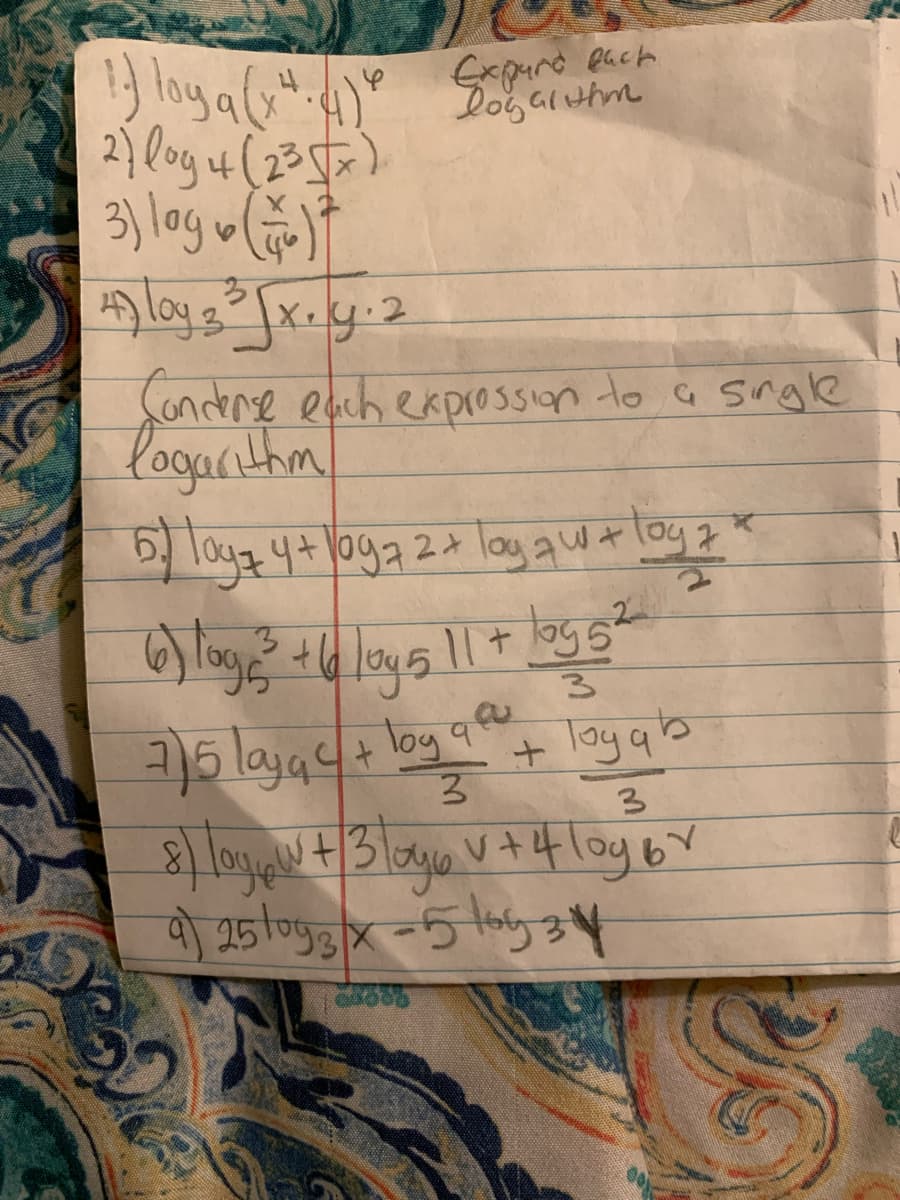 1.) log 9 (x⁴·4)⁶ Expand each
logarithm
2) log 4 (2³√x)
3) log 6 (x/4⁶)²
4) log 3 ³√x·y·2
Condense each expression to a single
logarithm
5.) log 7 4 + log 7 2 + log 7 w + log 7 x/2
6) log 5 3 + 6 log 5 11 + log 5 2/3
7) 5 log 9 c + log 9 a/3 + log 9 b/3
8) log 6 w + 3 log 6 v + 4 log 6 r
9) 25 log 3 x - 5 log 3 y